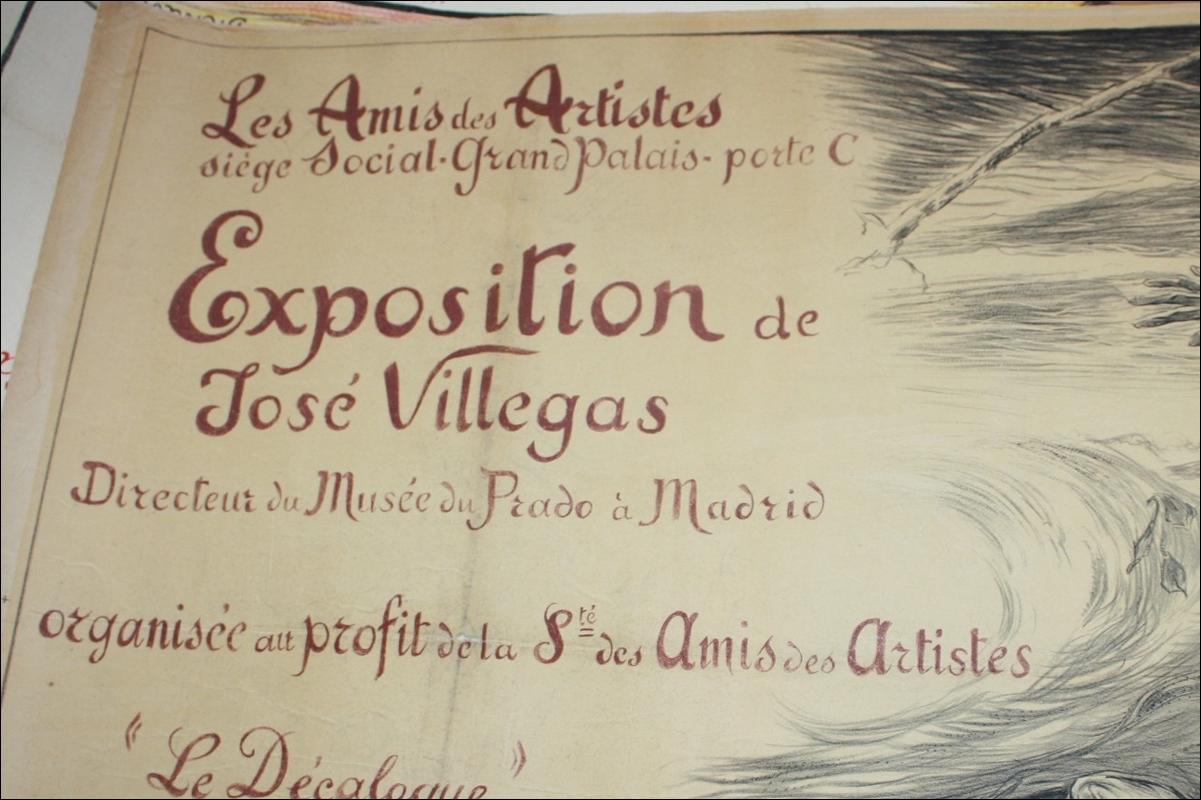 Les Amis des Artistes
siège Social-Grand Palais-porte C
Exposition de
José Villegas
Directeur du Musée du Prado à Madrid
organisée au profit de la Sté des Amis des Artistes
"Le Décalogue"